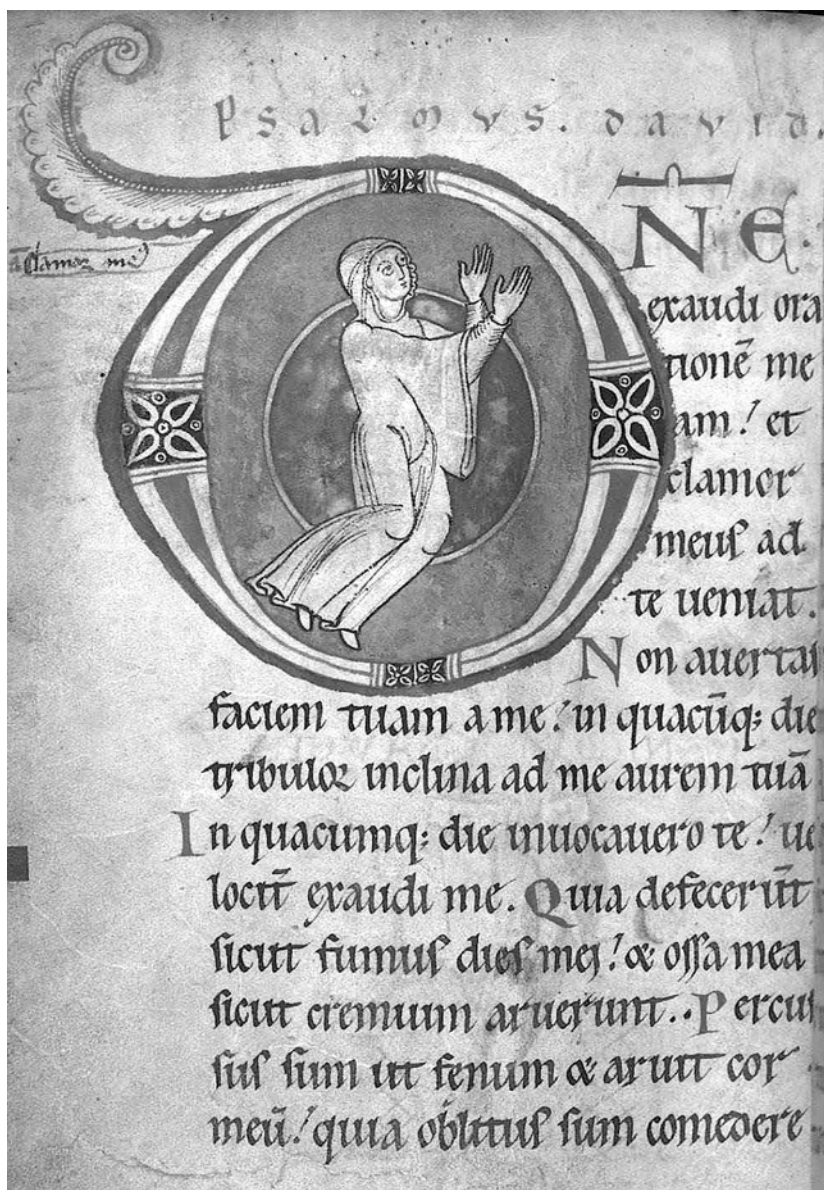 PSALMVS. DAVID.
DNE
clamor me
exaudi ora
tionē me
am! et
clamor
meus ad
te ueniat.
Non auertas
faciem tuam a me! in quacūq; die
tribulor inclina ad me aurem tuā
In quacumq; die inuocauero te! ue
locit̄ exaudi me. Quia defecerūt
sicut fumus dies mei! & ossa mea
sicut cremium aruerunt. Percus
sus sum ut fenum & aruit cor
meū! quia oblitus sum comedere